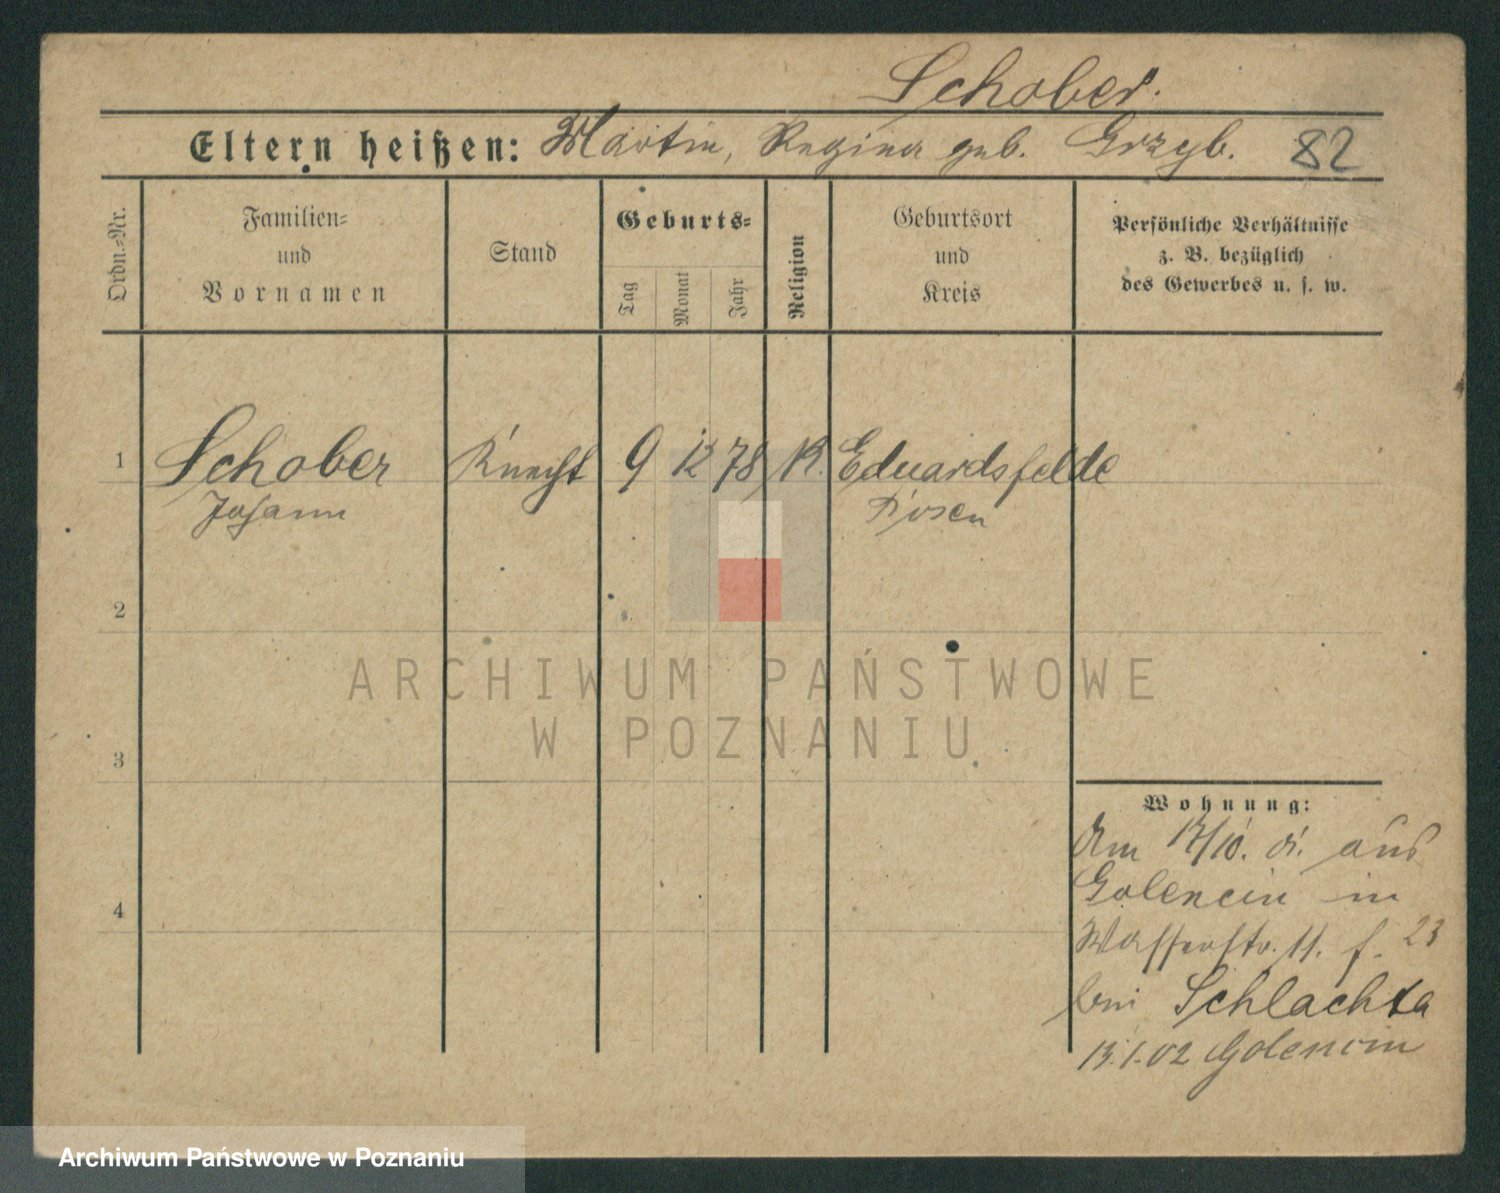 Schober.
Eltern heißen: Martin, Regina geb. Grzyb. 82
Ordn.-Nr.
Familien-
und
Vornamen
Stand
Geburts-
Tag
Monat
Jahr
Religion
Geburtsort
und
Kreis
Persönliche Verhältnisse
z. B. bezüglich
des Gewerbes u. s. w.
1 Schober Knecht 9 12 78 K. Eduardsfelde
Johann Posen
2
3
4
Wohnung:
Am 17/10. 01. aus
Golencin in
Wasserstr. 11. f. 23
bei Schlachta
13.1.02 Golencin
ARCHIWUM PAŃSTWOWE
W POZNANIU
Archiwum Państwowe w Poznaniu